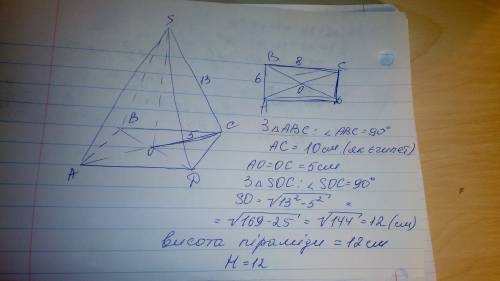 S
13
B
5
C
O
A
D
B 8 C
6
O
A D
З △ABC: ∠ABC=90°
AC = 10см (як єгипет)
AO=OC=5см
З △SOC: ∠SOC=90°
SO = √13²-5² =
= √169-25 = √144 = 12 (см)
висота піраміди = 12см
H=12